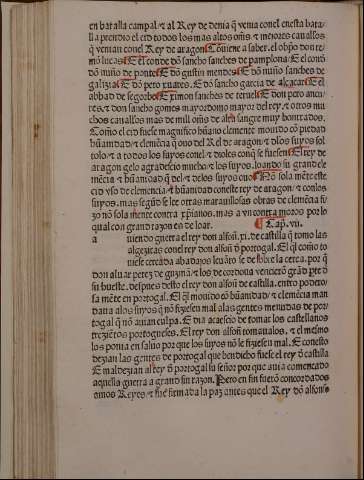 en batalla campal. ⁊ al Rey de denia q̄ venia conel enesta bata
lla prendio el cid todos los mas altos oms̄. ⁊ mejores cauallos
q̄ venian conel Rey de aragon Cōuiene a saber. el obp̄o don re
mō lucas E el con de dō sancho sanches de pamplona E el conð
dō nuño de pontes E dō gustin mendos E dō nuño sanches de
galizia E dō pero xuares. E dō sancho garcia de alcaçar E el
abbad de segorbo E ximon sanches de teruel E don pero ancu
res. ⁊ don sancho gomes mayordomo mayor del rey. ⁊ otros mu
chos caualleros mas de mill oms̄ de alta sangre muy honrrados.
Como el cid fuese magnifico hūano clemente mouido cō piedad
hūanidad ⁊ clemēcia q̄ ouo del Rel de aragon. ⁊ dlos suyos sol
tolo ⁊ a todos los suyos conel ⁊ dioles con q̄ se fuesen E el rey de
aragon gelo agradescio mucho ⁊ los suyos. loando su grand cle
mēcia ⁊ hūanidad q̄ del ⁊ delos suyos ouo Nō sola mēte este
cid vso de clemēcia ⁊ hūanidad coneste rey de aragon ⁊ conlos
suyos. mas segūd se lee otras marauillosas obras de clemēcia fi
zo nō sola mente contra xp̄ianos. mas a vn contra moros por lo
qual con grand razon es de loar. Cap̄. vii.
a uiendo guerra el rey don alfon̄. xi. de castilla q̄ tomo las
algeziras conel rey don alfon̄ ð portogal. El q̄l como to
uiese cercada abadajos leuātose de sobre la cerca. por q̄
don aluar peres de guzmā ⁊ los de cordoua vencierō grād pte ð
su hueste. despues desto el rey don alfon̄ de castilla. entro podero
sa mēte en portogal. El q̄l mouido cō hūanidad ⁊ clemēcia man
daua alos suyos q̄ nō fiziesen mal alas gentes menudas de por
togal q̄ nō auian culpa. E dia acaescio de tomar los castellanos
trezietos portogueses. El rey don alfon̄ tomaualos. ⁊ el mesmo
los ponia en saluo por que los suyos nō le fiziesen mal. E conesto
dezian las gentes de portogal que bendicho fuese el rey ð castilla
E maldezian al rey ð portogal su señor por que auia comencado
aquella guerra a grand sin razon. Pero en fin fuerō concordados
amos Reyes ⁊ fue firmada la paz antes que el Rey dō alfonso